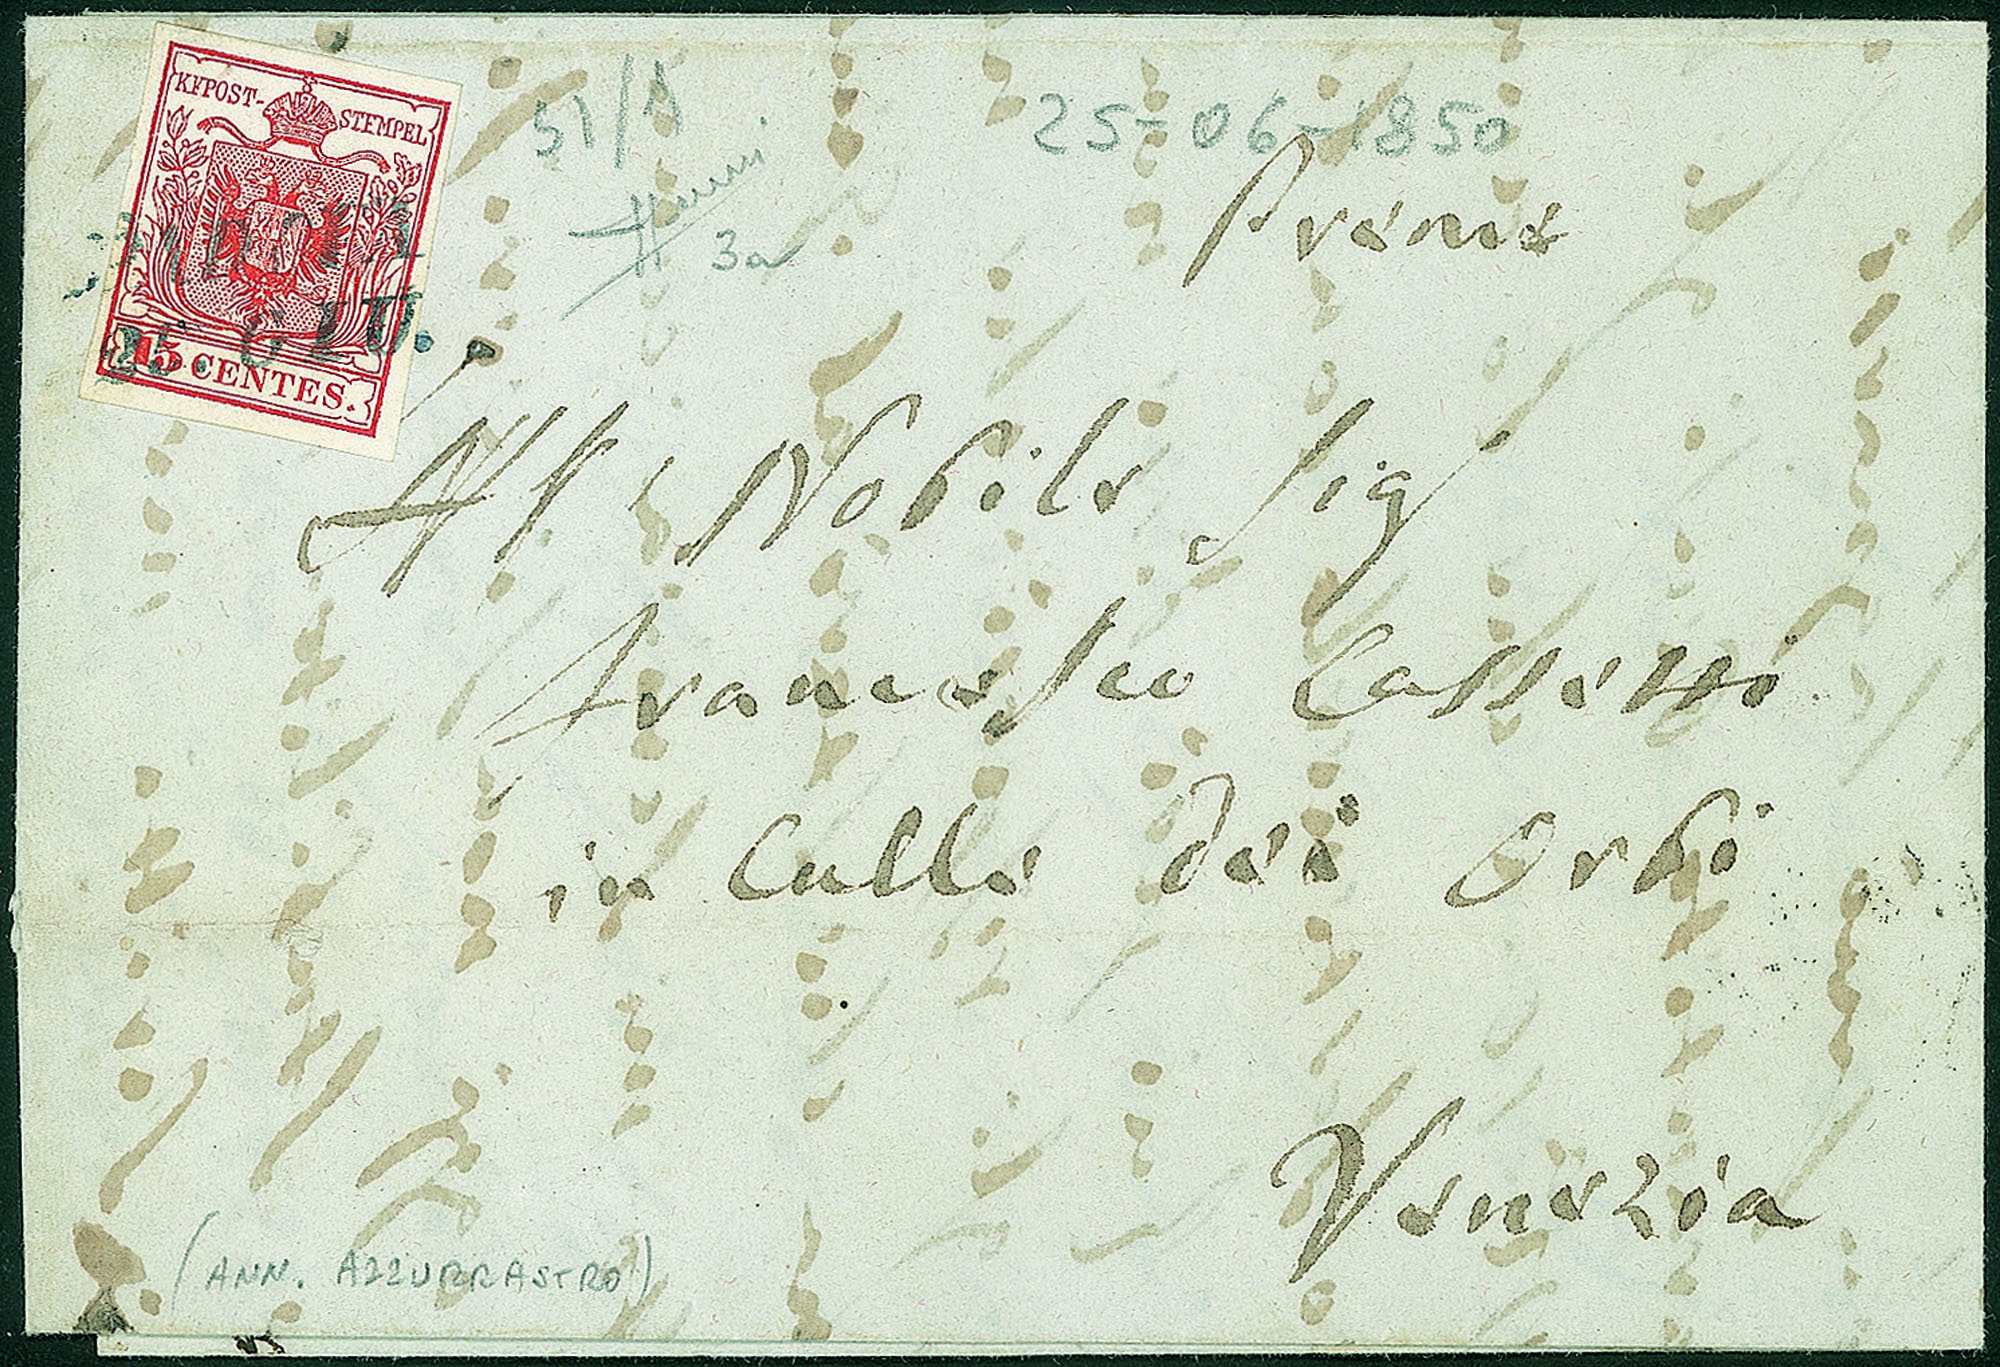 KKPOST-
STEMPEL
PADOVA
25. GIU.
15 CENTES.
51/A
25-06-1850
3a
Preme
All Nobile Sig
Francesco
in Calle dei Orbi
Venezia
(ANN. AZZURRASTRO)